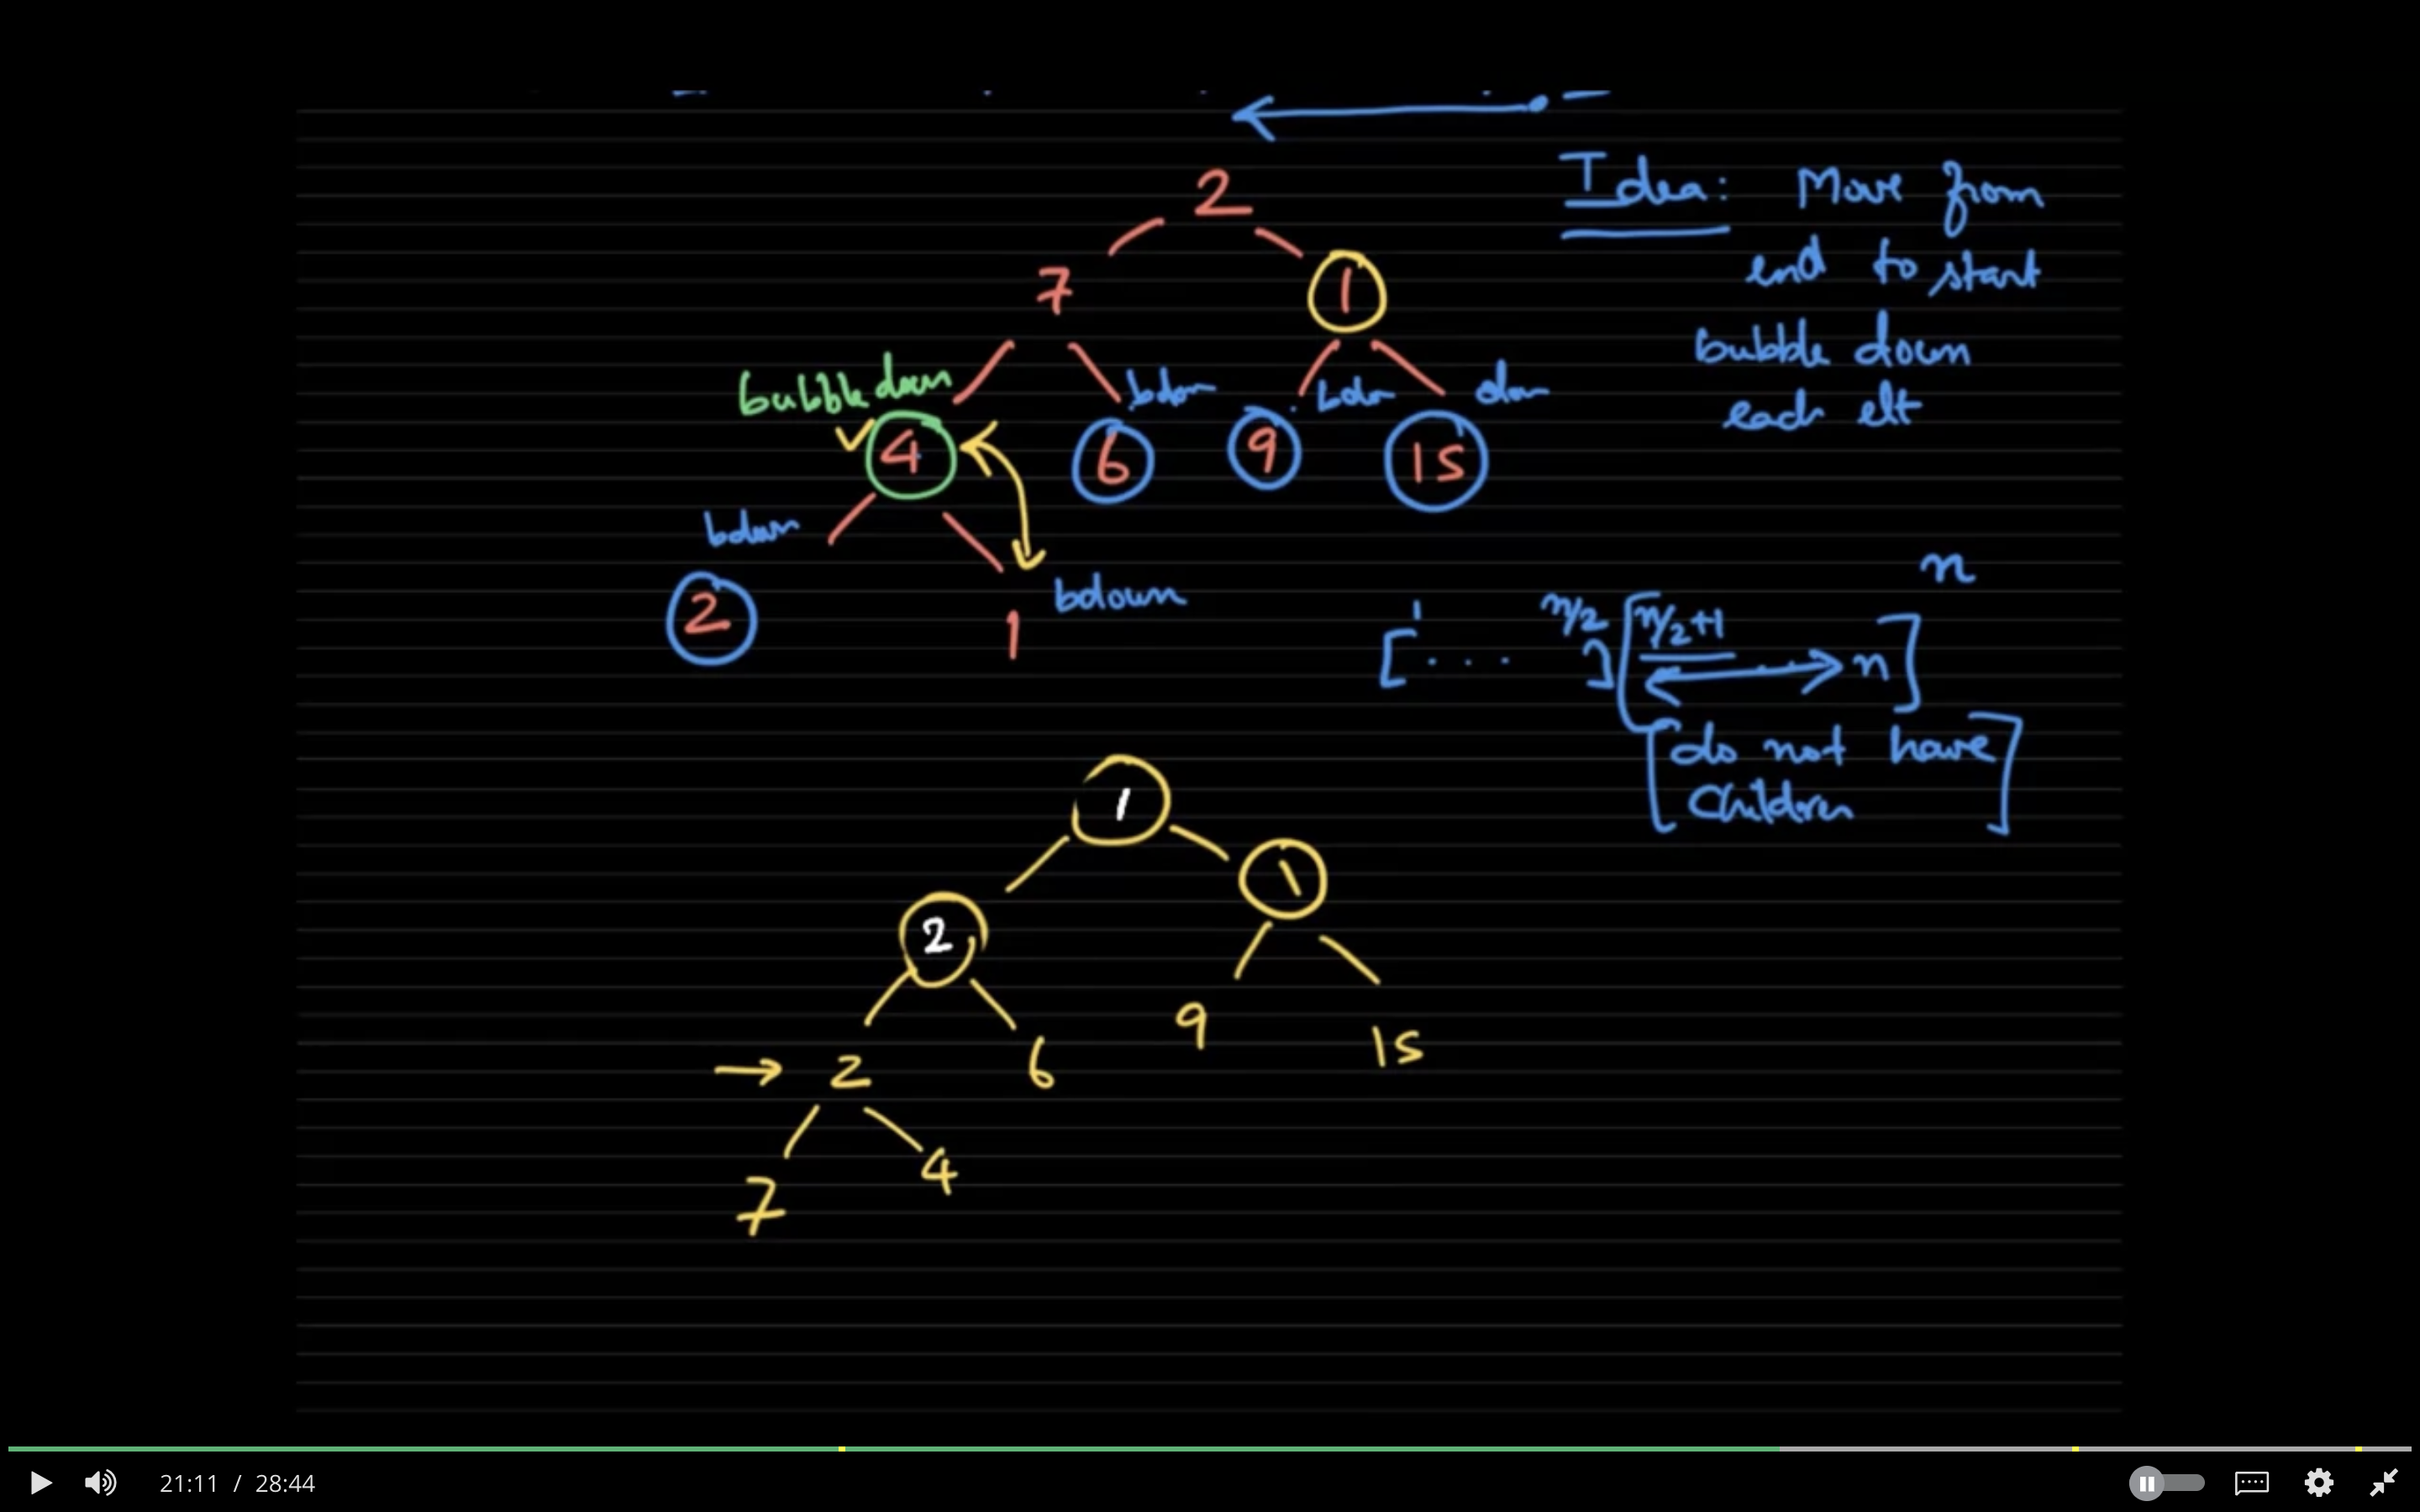 2
Idea: Move from
end to start
bubble down
each elt
7 1
bubble down bdown bdown down
4 6 9 15
bdown bdown
2 1
n
[1 ... n/2] [n/2+1 n]
[do not have
children]
1
2 1
2 6 9 15
7 4
21:11 / 28:44